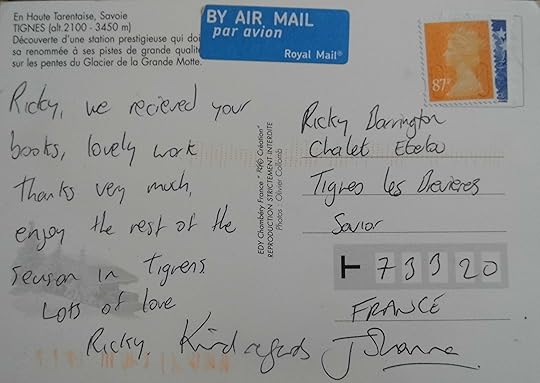 En Haute Tarentaise, Savoie
TIGNES (alt. 2100 - 3450 m)
Découverte d'une station prestigieuse qui doi
sa renommée à ses pistes de grande qualité
sur les pentes du Glacier de la Grande Motte.
BY AIR MAIL
par avion
Royal Mail®
87P
Ricky, we recieved your
books, lovely work
thanks very much,
enjoy the rest of the
season in Tigrens
Lots of love
Ricky. Kind regards
EDY Chambéry France
REPRODUCTION STRICTEMENT INTERDITE
Photos : Olivier Collomb
Ricky Barrington
Chalet
Tignes les Brevieres
Savior
73320
FRANCE